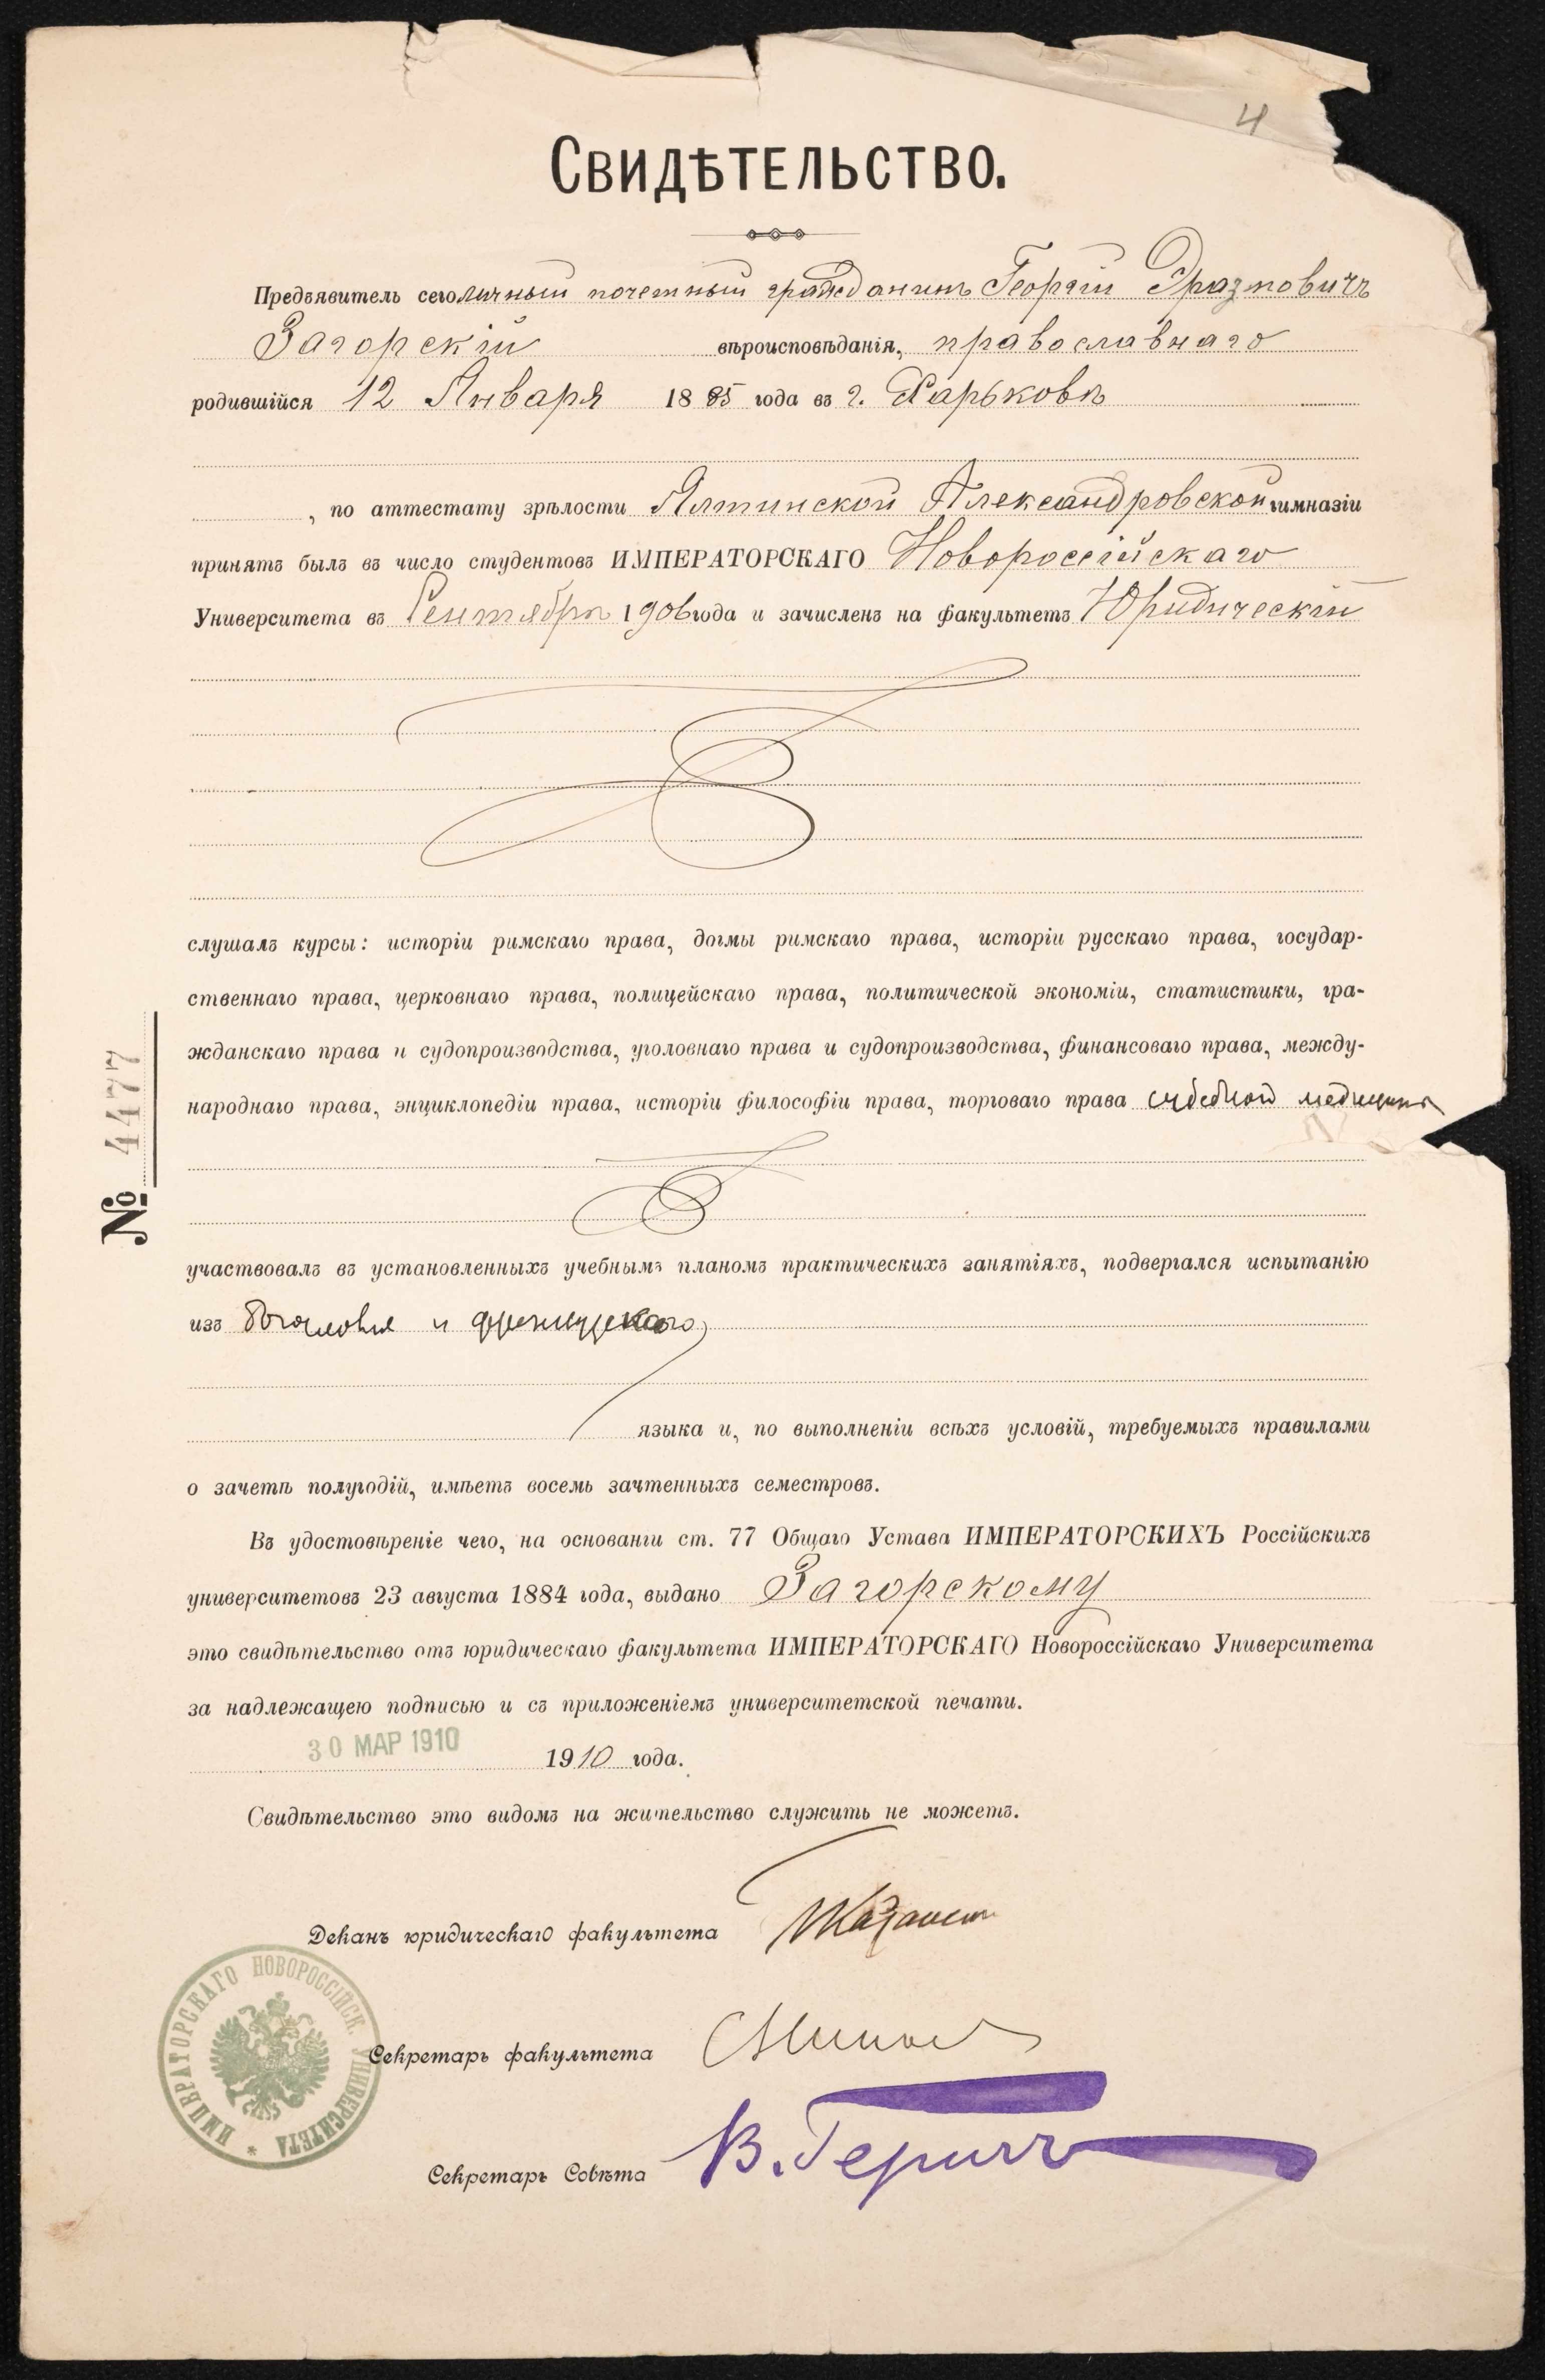 4
Свидѣтельство.
Предъявитель сего личный почетный гражданинъ Георгій Эразмовичъ
Загорскій вѣроисповѣданія, православнаго
родившійся 12 Января 1885 года въ г. Харьковѣ
, по аттестату зрѣлости Ялтинской Александровской гимназіи
принятъ былъ въ число студентовъ ИМПЕРАТОРСКАГО Новороссійскаго
Университета въ Сентябрѣ 1906 года и зачисленъ на факультетъ Юридическій
слушалъ курсы: исторіи римскаго права, догмы римскаго права, исторіи русскаго права, государ-
ственнаго права, церковнаго права, полицейскаго права, политической экономіи, статистики, гра-
жданскаго права и судопроизводства, уголовнаго права и судопроизводства, финансоваго права, между-
народнаго права, энциклопедіи права, исторіи философіи права, торговаго права судебной медицины
№ 4477
участвовалъ въ установленныхъ учебнымъ планомъ практическихъ занятіяхъ, подвергался испытанію
изъ богословія и французскаго
языка и, по выполненіи всѣхъ условій, требуемыхъ правилами
о зачетѣ полугодій, имѣетъ восемь зачтенныхъ семестровъ.
Въ удостовѣреніе чего, на основаніи ст. 77 Общаго Устава ИМПЕРАТОРСКИХЪ Россійскихъ
университетовъ 23 августа 1884 года, выдано Загорскому
это свидѣтельство отъ юридическаго факультета ИМПЕРАТОРСКАГО Новороссійскаго Университета
за надлежащею подписью и съ приложеніемъ университетской печати.
30 МАР 1910
1910 года.
Свидѣтельство это видомъ на жительство служить не можетъ.
Деканъ юридическаго факультета
ИМПЕРАТОРСКАГО НОВОРОССІЙСК. УНИВЕРСИТЕТА *
Секретарь факультета
Секретарь Совѣта В. Геричъ